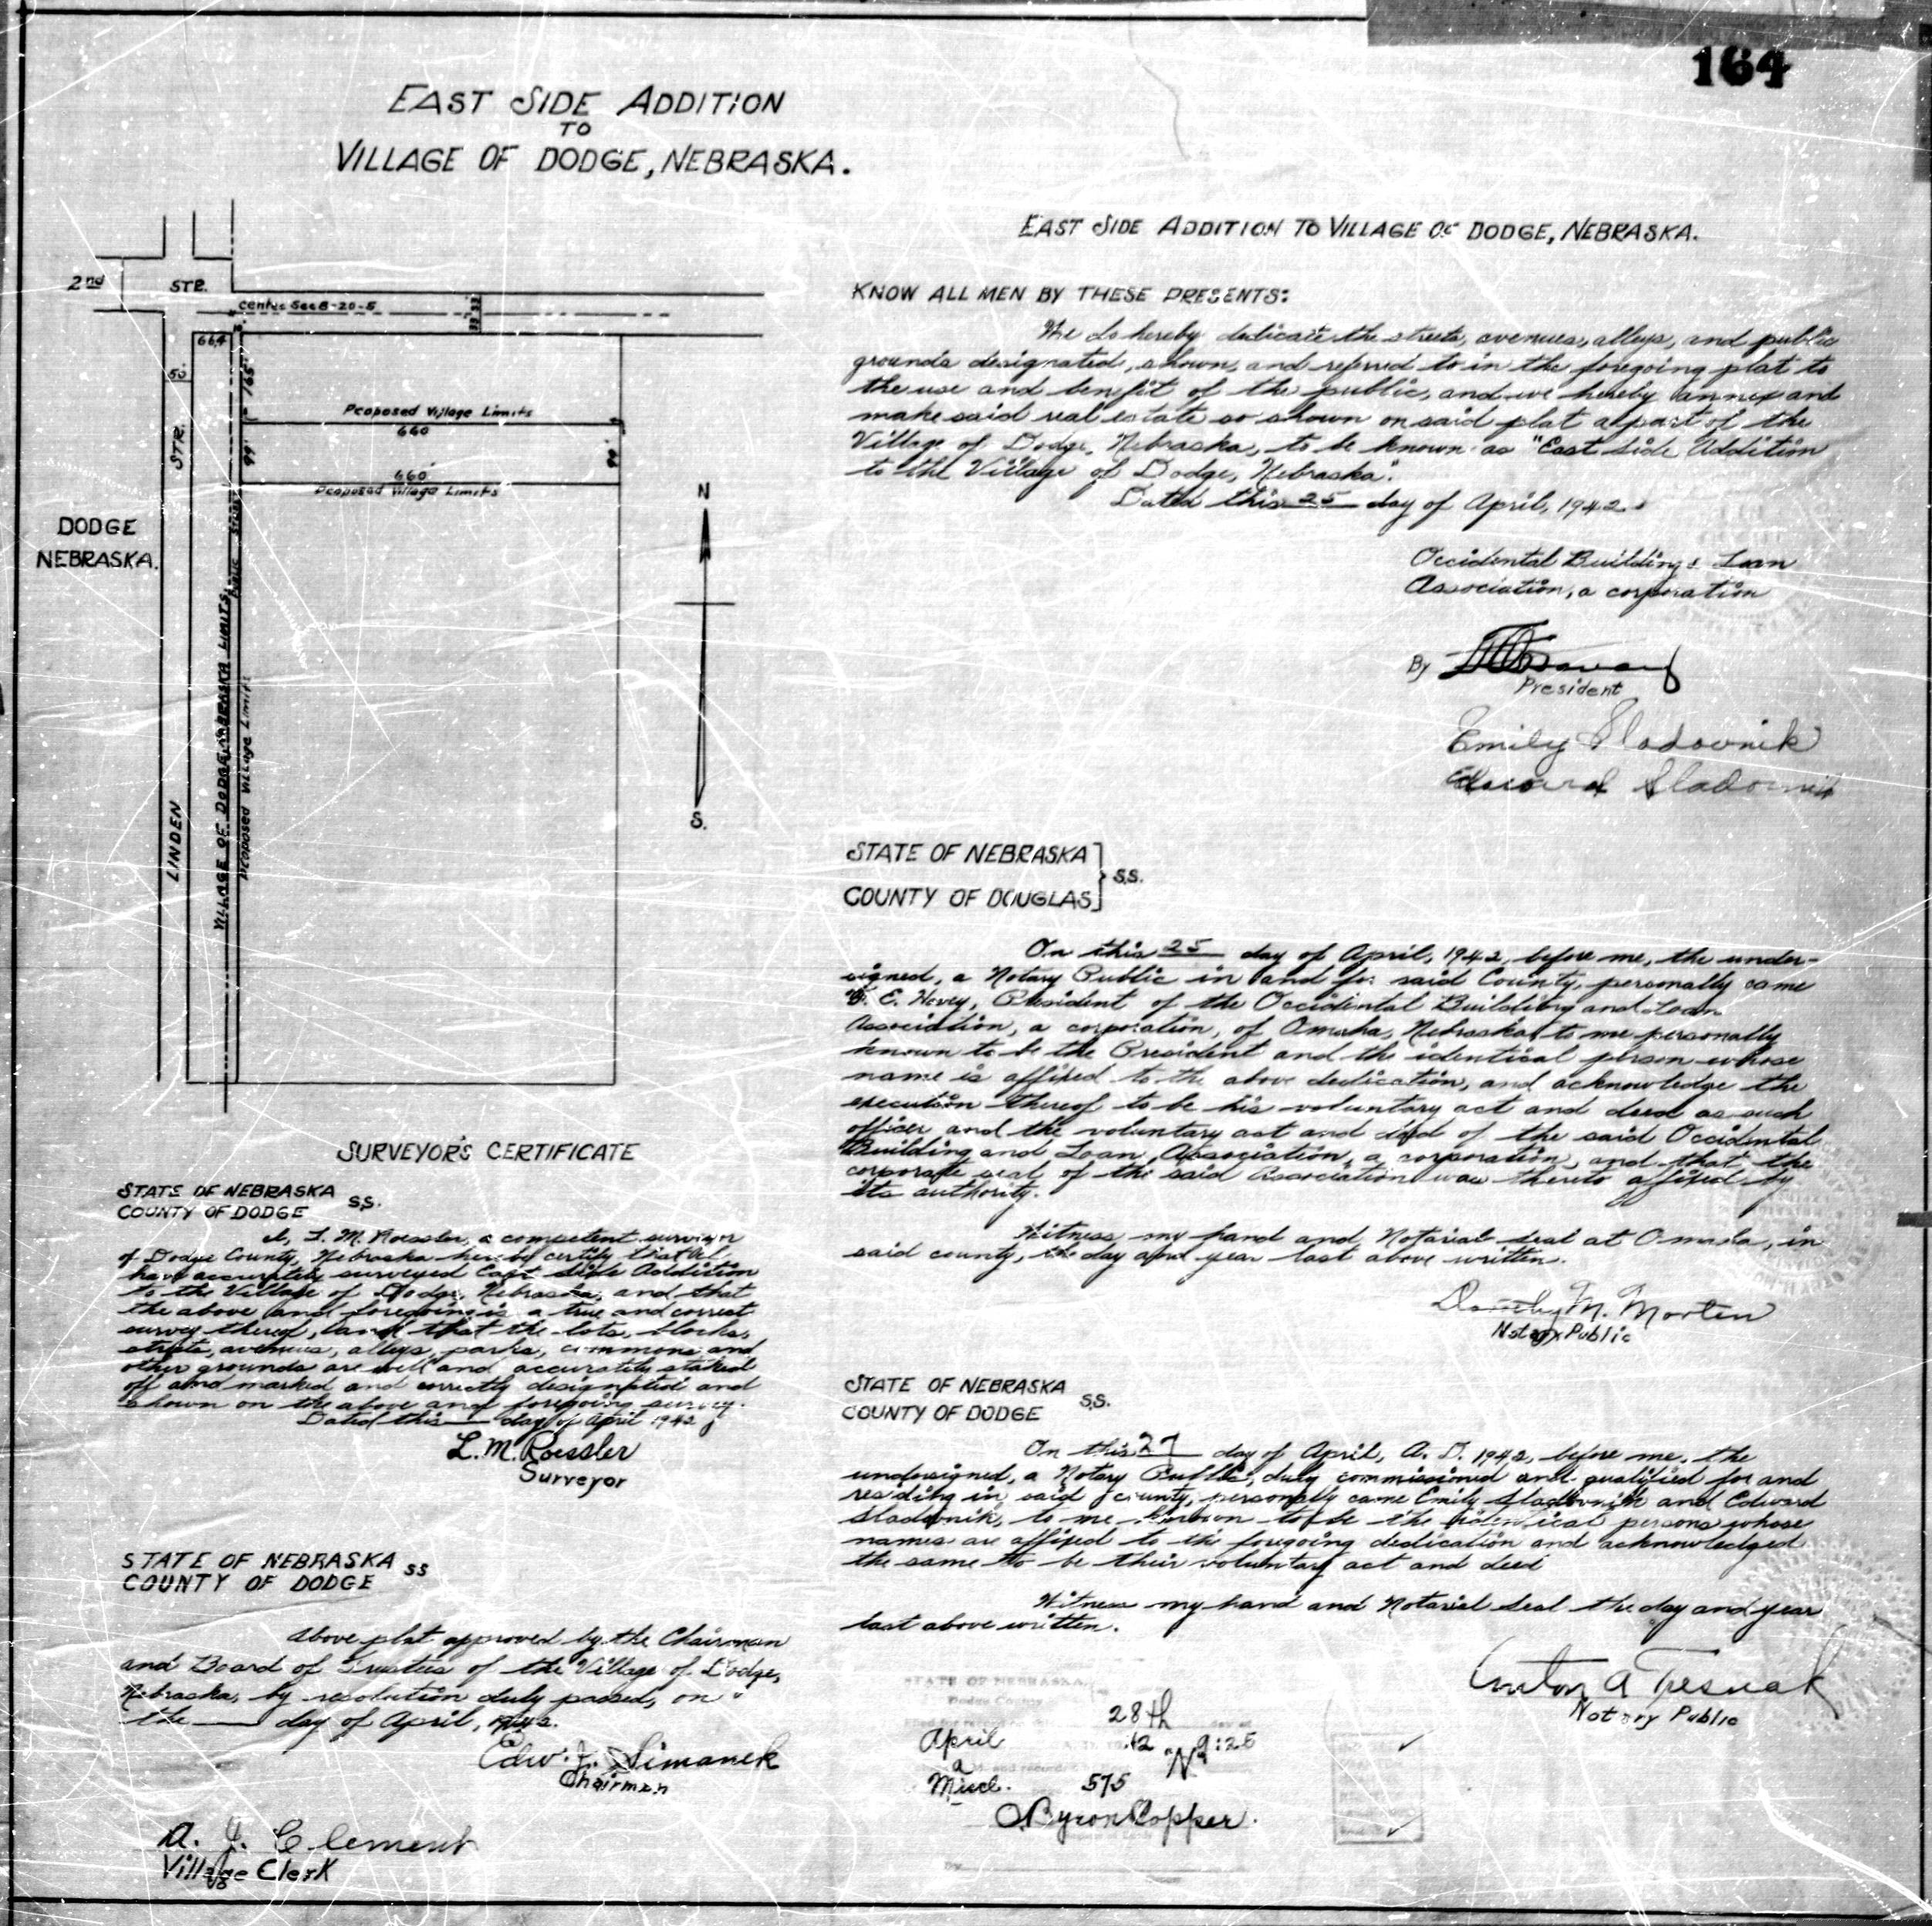 164
EAST SIDE ADDITION
TO
VILLAGE OF DODGE, NEBRASKA.
2nd STR.
Center Sec 8-20-5
33 33
66.4
50.
165'
Proposed Village Limits
660
99'
99'
660'
Proposed Village Limits
STR.
LINDEN
VILLAGE OF DODGE, NEBRASKA LIMITS
Proposed Village Limits
DODGE
NEBRASKA.
N
S.
SURVEYOR'S CERTIFICATE
STATE OF NEBRASKA
COUNTY OF DODGE S.S.
I, L. M. Roessler, a competent surveyor
of Dodge County, Nebraska hereby certify that I
have accurately surveyed East Side Addition
to the Village of Dodge, Nebraska, and that
the above and foregoing is a true and correct
survey thereof, and that the lots, blocks,
streets, avenues, alleys, parks, commons and
other grounds are well and accurately staked
off and marked and correctly designated and
shown on the above and foregoing survey.
Dated this day of April 1942
L. M. Roessler
Surveyor
STATE OF NEBRASKA
COUNTY OF DODGE SS
Above plat approved by the Chairman
and Board of Trustees of the Village of Dodge,
Nebraska, by resolution duly passed, on
the day of April, 1942.
Edw. J. Simanek
Chairman
A. J. Clement
Village Clerk
EAST SIDE ADDITION TO VILLAGE OF DODGE, NEBRASKA.
KNOW ALL MEN BY THESE PRESENTS:
We do hereby dedicate the streets, avenues, alleys, and public
grounds designated, shown, and referred to in the foregoing plat to
the use and benefit of the public, and we hereby annex and
make said real estate so shown on said plat a part of the
Village of Dodge, Nebraska, to be known as "East Side Addition
to the Village of Dodge, Nebraska".
Dated this 25 day of April, 1942.
Occidental Building & Loan
Association, a corporation
By
President
Emily Sladovnik
Edward Sladovnik
STATE OF NEBRASKA
COUNTY OF DOUGLAS S.S.
On this 25 day of April, 1942, before me, the under-
signed, a Notary Public in and for said County, personally came
E. Hovey, President of the Occidental Building and Loan
Association, a corporation, of Omaha, Nebraska, to me personally
known to be the President and the identical person whose
name is affixed to the above dedication, and acknowledge the
execution thereof to be his voluntary act and deed as such
officer and the voluntary act and deed of the said Occidental
Building and Loan Association, a corporation, and that the
corporate seal of the said Association was thereto affixed by
its authority.
Witness my hand and Notarial seal at Omaha, in
said county, the day and year last above written.
M. Morten
Notary Public
STATE OF NEBRASKA
COUNTY OF DODGE S.S.
On this 27 day of April, A. D. 1942, before me, the
undersigned, a Notary Public, duly commissioned and qualified for and
residing in said county, personally came Emily Sladovnik and Edward
Sladovnik, to me known to be the identical persons whose
names are affixed to the foregoing dedication and acknowledged
the same to be their voluntary act and deed
Witness my hand and Notarial Seal the day and year
last above written.
Anton A Tresnak
Notary Public
STATE OF NEBRASKA
Dodge County
28th
April 42 9:25
a
Miscl. 575
Byron Copper.